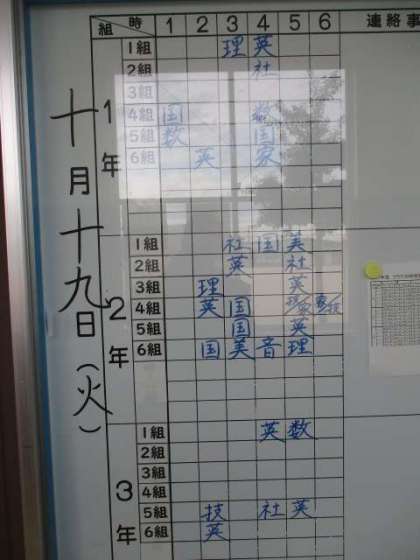 組 時 1 2 3 4 5 6 連絡事
十月十九日(火)
1年
1組 理 英
2組 社
3組
4組 国 数
5組 数 国
6組 英 家
2年
1組 社 国 美
2組 英 社
3組 理 英
4組 英 国 技/家 家/技
5組 国 英
6組 国 美 音 理
3年
1組 英 数
2組
3組
4組
5組 技 社 英
6組 英